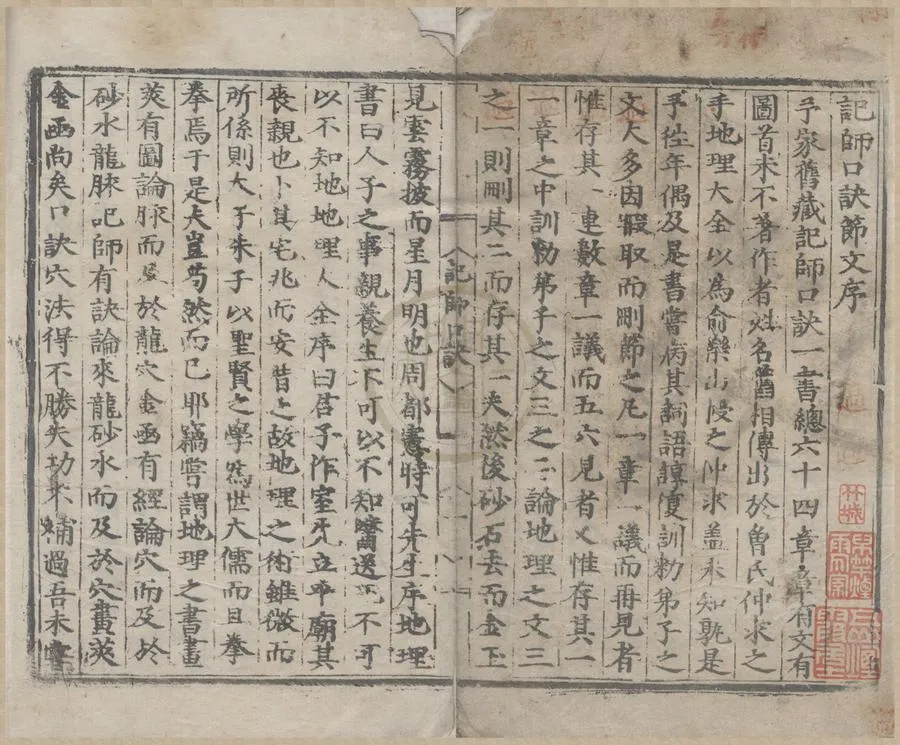 記師口訣節文序
予家舊藏記師口訣一書總六十四章章有文有
圖首末不著作者姓名舊相傳出於魯氏仲求之
手地理大全以為俞樂山授之仲求盖未知孰是
予徃年偶及是書嘗病其詞語諄復訓勑弟子之
文大多因暇取而刪節之凡一章一議而再見者
惟存其一連數章一議而五六見者又惟存其一
一章之中訓勑弟子之文三之二論地理之文三
之一則刪其二而存其一夫然後砂石去而金玉
記師口訣
見雲霧披而星月明也周都憲時可先生序地理
書曰人子之事親養生不可以不知醫送死不可
以不知地地理人全序曰君子作室必立平廟其
喪親也卜其宅兆而安昔之故地理之術雖微而
所係則大子朱子以聖賢之學為世大儒而且拳
拳焉于是夫豈苟然而已耶竊嘗謂地理之書畫
莢有圖論脉而及於龍穴金函有經論穴而及於
砂水龍脉記師有訣論來龍砂水而及於穴畫莢
金函尚矣口訣穴法得不勝失功不補過吾未
林城